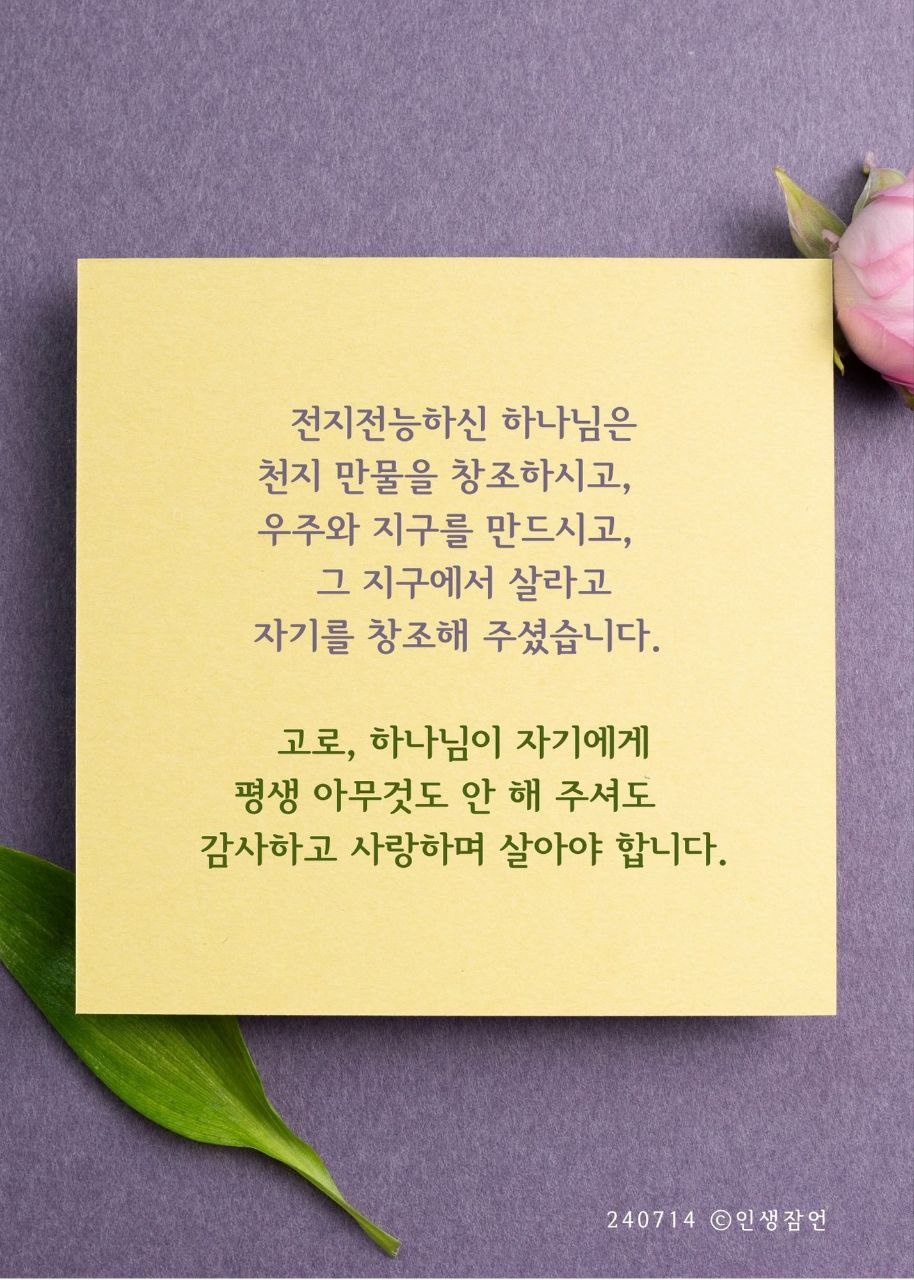 전지전능하신 하나님은
천지 만물을 창조하시고,
우주와 지구를 만드시고,
그 지구에서 살라고
자기를 창조해 주셨습니다.
고로, 하나님이 자기에게
평생 아무것도 안 해 주셔도
감사하고 사랑하며 살아야 합니다.
240714 ©인생잠언